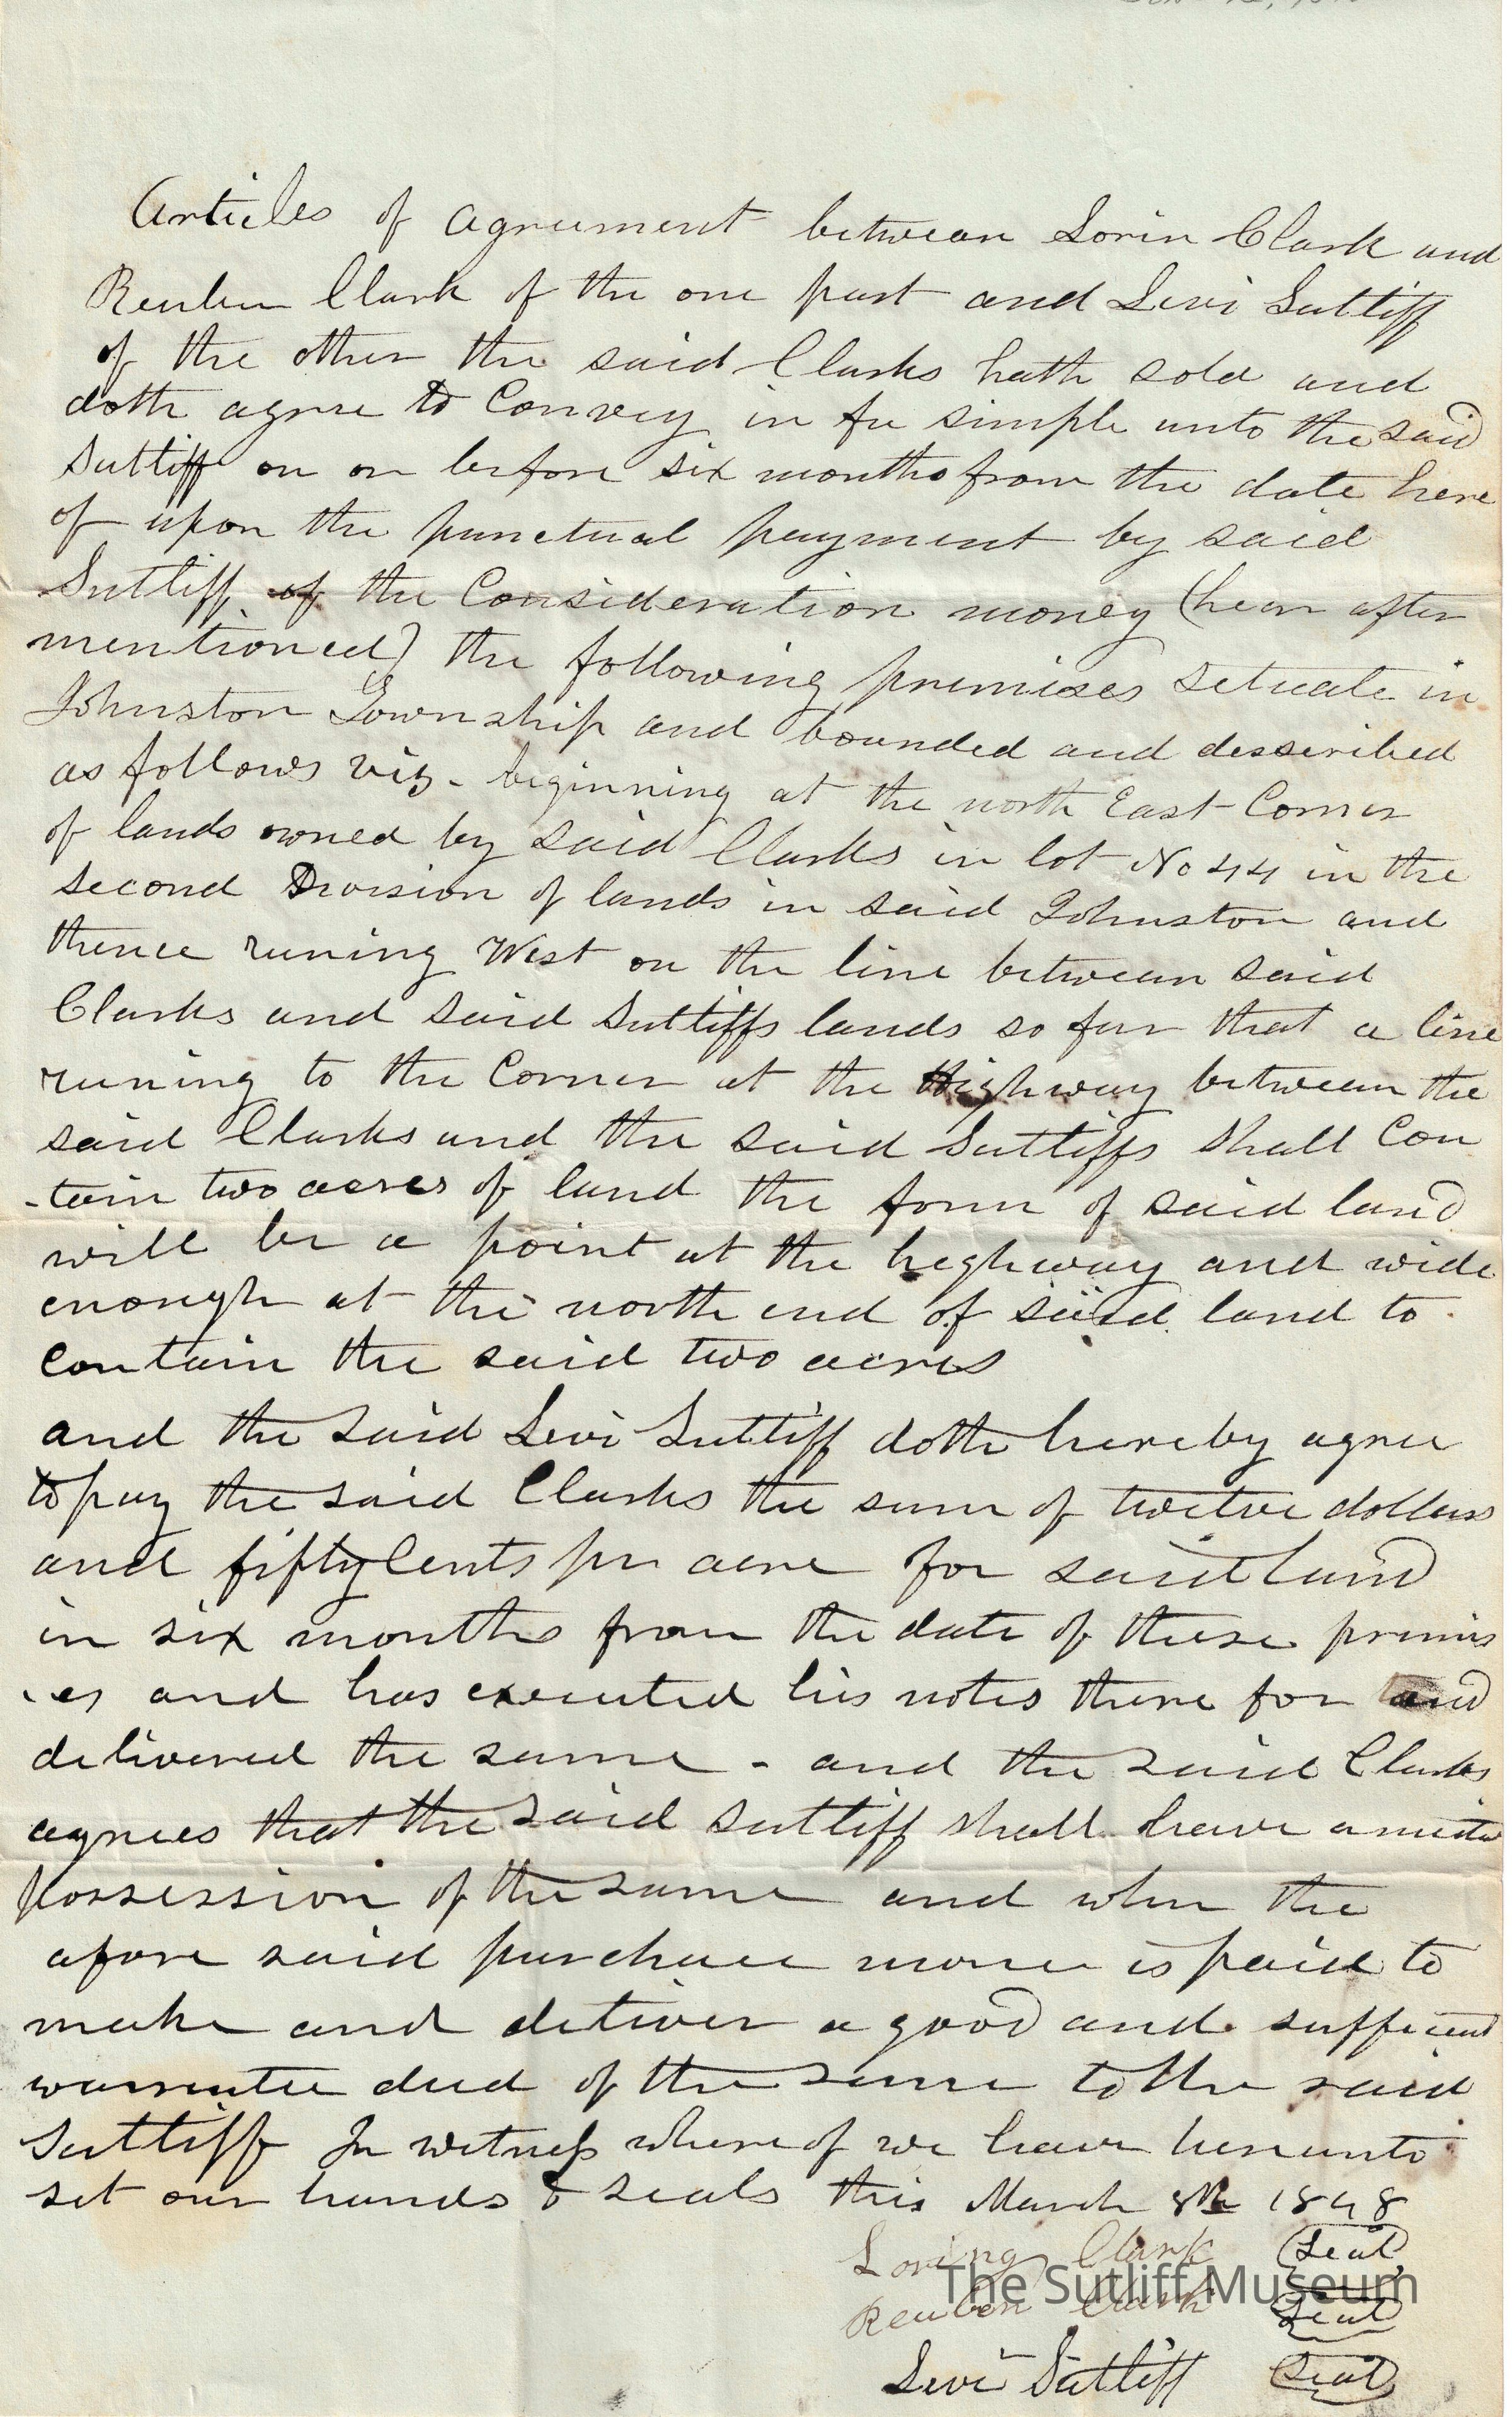 Articles of agreement between Lorin Clark and
Reuben Clark of the one part and Levi Sutliff
of the other the said Clarks hath sold and
doth agree to Convey in fee simple unto the said
Sutliff on or before six months from the date here
of upon the punctual payment by said
Sutliff of the Consideration money (hear after
mentioned) the following premises setuate in
Johnston Township and bounded and desscribed
as follows viz - beginning at the north East Corner
of lands owned by said Clarks in lot No 44 in the
second Division of lands in said Johnston and
thence runing West on the line between said
Clarks and said Sutliffs lands so far that a line
runing to the Corner at the Highway between the
said Clarks and the said Sutliffs shall Con
-tain two acres of land the form of said land
will be a point at the heghway and wide
enough at the north end of said land to
contain the said two acres
and the said Levi Sutliff doth hereby agree
to pay the said Clarks the sum of twelve dollars
and fifty Cents per acre for said land
in six months from the date of these premis
es and has executed his notes there for and
delivered the same - and the said Clarks
agrees that the said Sutliff shall have
possession of the same and when the
afore said purchase is paid to
make and deliver a good and sufficient
warrentee deed of the same to the said
Sutliff In witness where of we have hereunto
set our hands & seals this March 8th 1848
Loring Clark (Seal)
Reuben Clark (Seal)
Levi Sutliff (Seal)
The Sutliff Museum